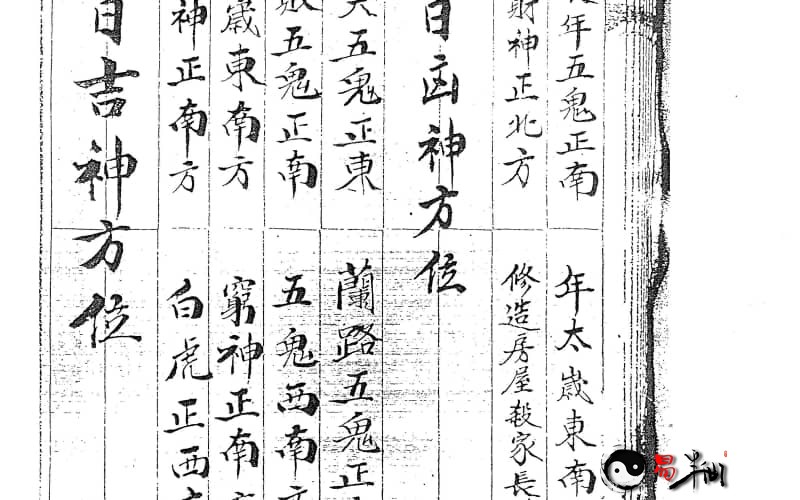 年五鬼正南　年太歲東南
財神正北方　修造房屋殺家長
日凶神方位
五鬼正東　蘭路五鬼正
五鬼正南　五鬼西南
歲東南方　窮神正南
神正南方　白虎正西
日吉神方位
易